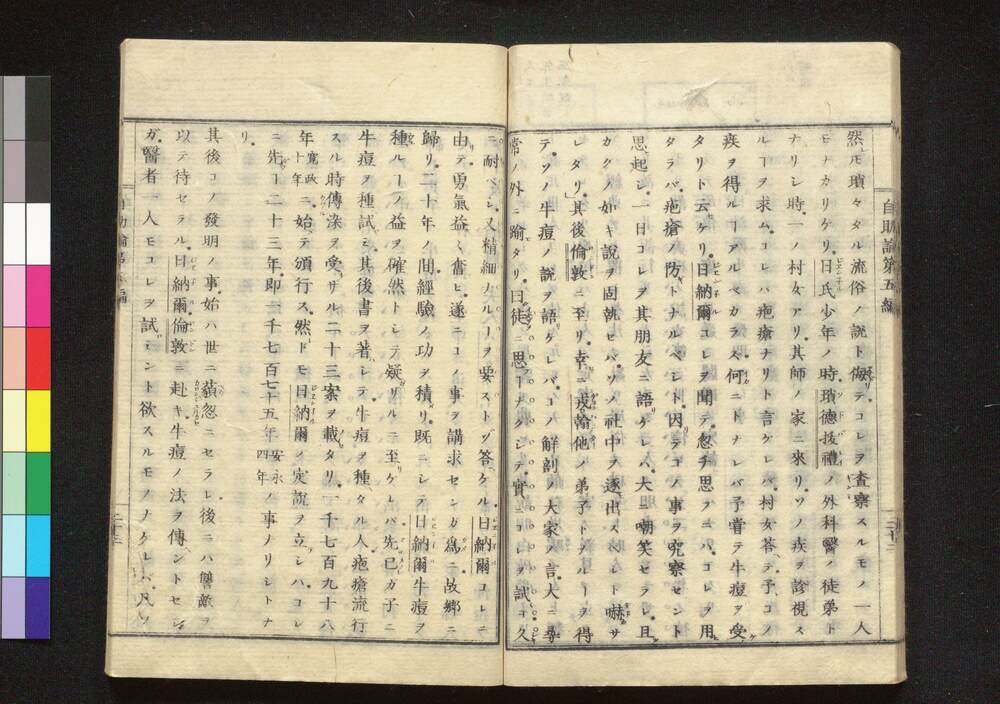 自助論第五編
然𪜈瑣々タル流俗ノ說ト侮テコレヲ査察スルモノ一人
モナカリケリ日氏少年ノ時瑣德拔禮ノ外科醫ノ徒弟ト
ナリシ時一ノ村女アリ其師ノ家ニ來リソノ疾ヲ診視ス
ルヿヲ求ムコレハ疱瘡ナリト言ケレバ村女答テ予コノ
疾ヲ得ルヿアルベカラス何ニトナレバ予嘗テ牛痘ヲ受
タリト云ケリ日納爾コレヲ聞テ忽チ思フニハコレヲ用
タラバ疱瘡ノ防トナルベシト因テコノ事ヲ究察セント
思起シ一日コレヲ其朋友ニ語リケレバ大ニ嘲笑セラレ且
カクノ如キ說ヲ固執セバソノ社中ヲ逐出スベシト嚇サ
レタリ」其後倫敦ニ至リ幸ニ戎翰他ノ弟子トナルヿヲ得
テソノ牛痘ノ說ヲ語ケレバコノ解剖ノ大家ノ言大ニ尋
常ノ外ニ踰タリ曰徒ニ思フヿナクシテ實ニコレヲ試ヨ久
二十二
ニ耐ベシ又精細ナルヿヲ要ストゾ答ケル日納爾コレニ
由テ勇氣益々奮ヒ遂ニコノ事ヲ講求センガ爲ニ故鄉ニ
歸リ二十年ノ間經驗ノ功ヲ積リ既ニシテ日納爾牛痘ヲ
種ルヿノ益ヲ確然トシテ疑ザルニ至ケレバ先己ガ子ニ
牛痘ヲ種試ミ其後書ヲ著シテ牛痘ヲ種タル人疱瘡流行
スル時傳染ヲ受ザル二十三案ヲ載タリ一千七百九十八
年寬政十年ニ始テ頒行ス然ドモ日納爾ノ定說ヲ立シハコレ
ニ先ヿ二十三年即一千七百七十五年安永四年ノ事ナリシトナ
リ
其後コノ發明ノ事始ハ世ニ藐忽ニセラレ後ニハ讐敵ヲ
以テ待セラル日納爾倫敦ニ赴キ牛痘ノ法ヲ傳ントセシ
ガ醫者一人モコレヲ試ミント欲スルモノナケレバ凡ソ